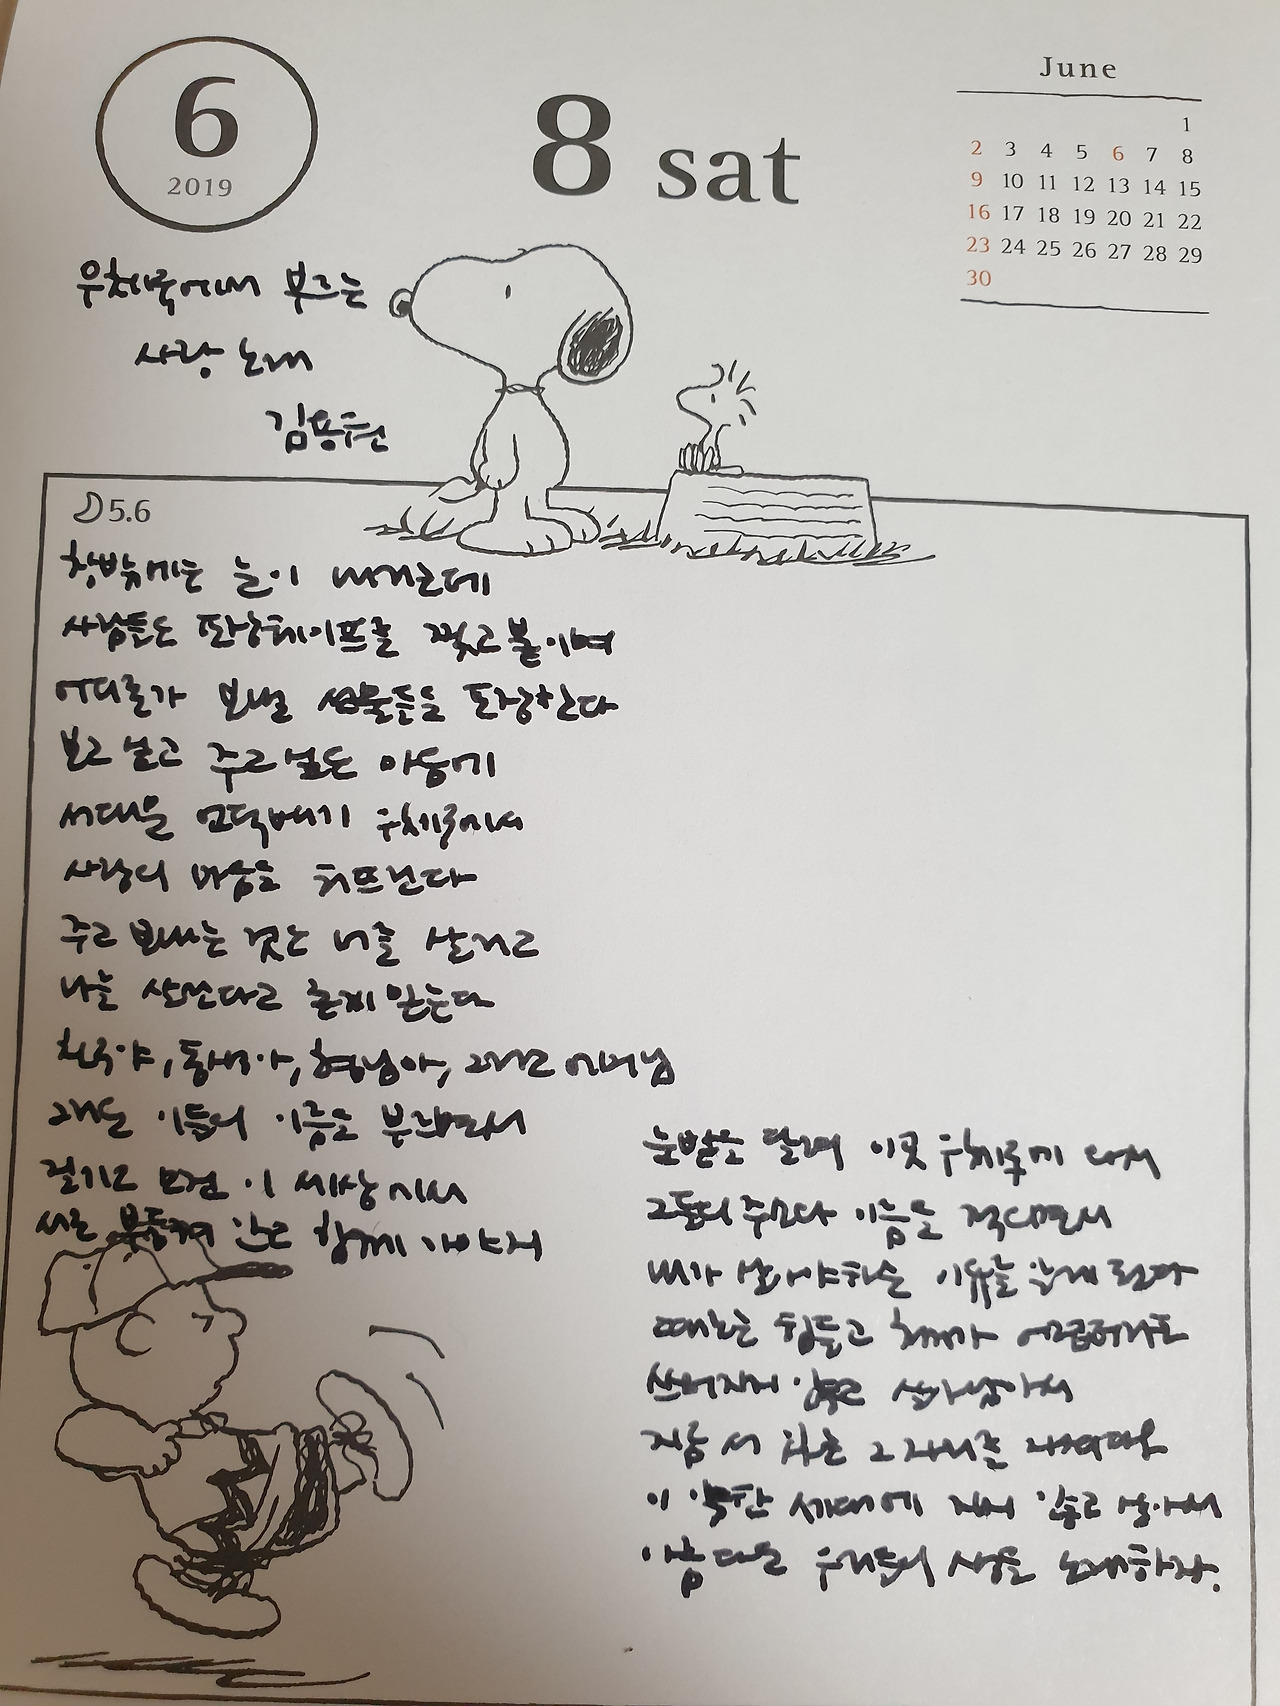 6
2019
8 sat
June
1
2 3 4 5 6 7 8
9 10 11 12 13 14 15
16 17 18 19 20 21 22
23 24 25 26 27 28 29
30
우체국에서 부르는
사랑 노래
김용원
5.6
창밖에는 눈이 내리는데
사람들은 포장테이프를 찢고 붙이며
어디론가 보낼 선물들을 포장한다
보고 싶고 주고 싶은 마음에
서대문 언덕배기 우체국에서
사랑의 마음을 퍼뜨린다
주고 보내는 것은 너를 살리고
나를 살린다고 굳게 믿는다
친구야, 동생아, 형님아, 그리고 어머님
그리운 이들의 이름을 부르면서
질기고 모진 이 세상에서
서로 부둥켜 안고 함께 가야지
눈밭을 달려 이곳 우체국에 와서
그들의 주소와 이름을 적으면서
내가 살아야하는 이유를 알게 된다
때로는 힘들고 어렵더라도
쓰러지지 않고 살아남아서
지금 서 있는 그 자리를 지키며
이 악한 세대에 지지 않고 살아서
아름다운 우리들의 사랑을 노래하자.